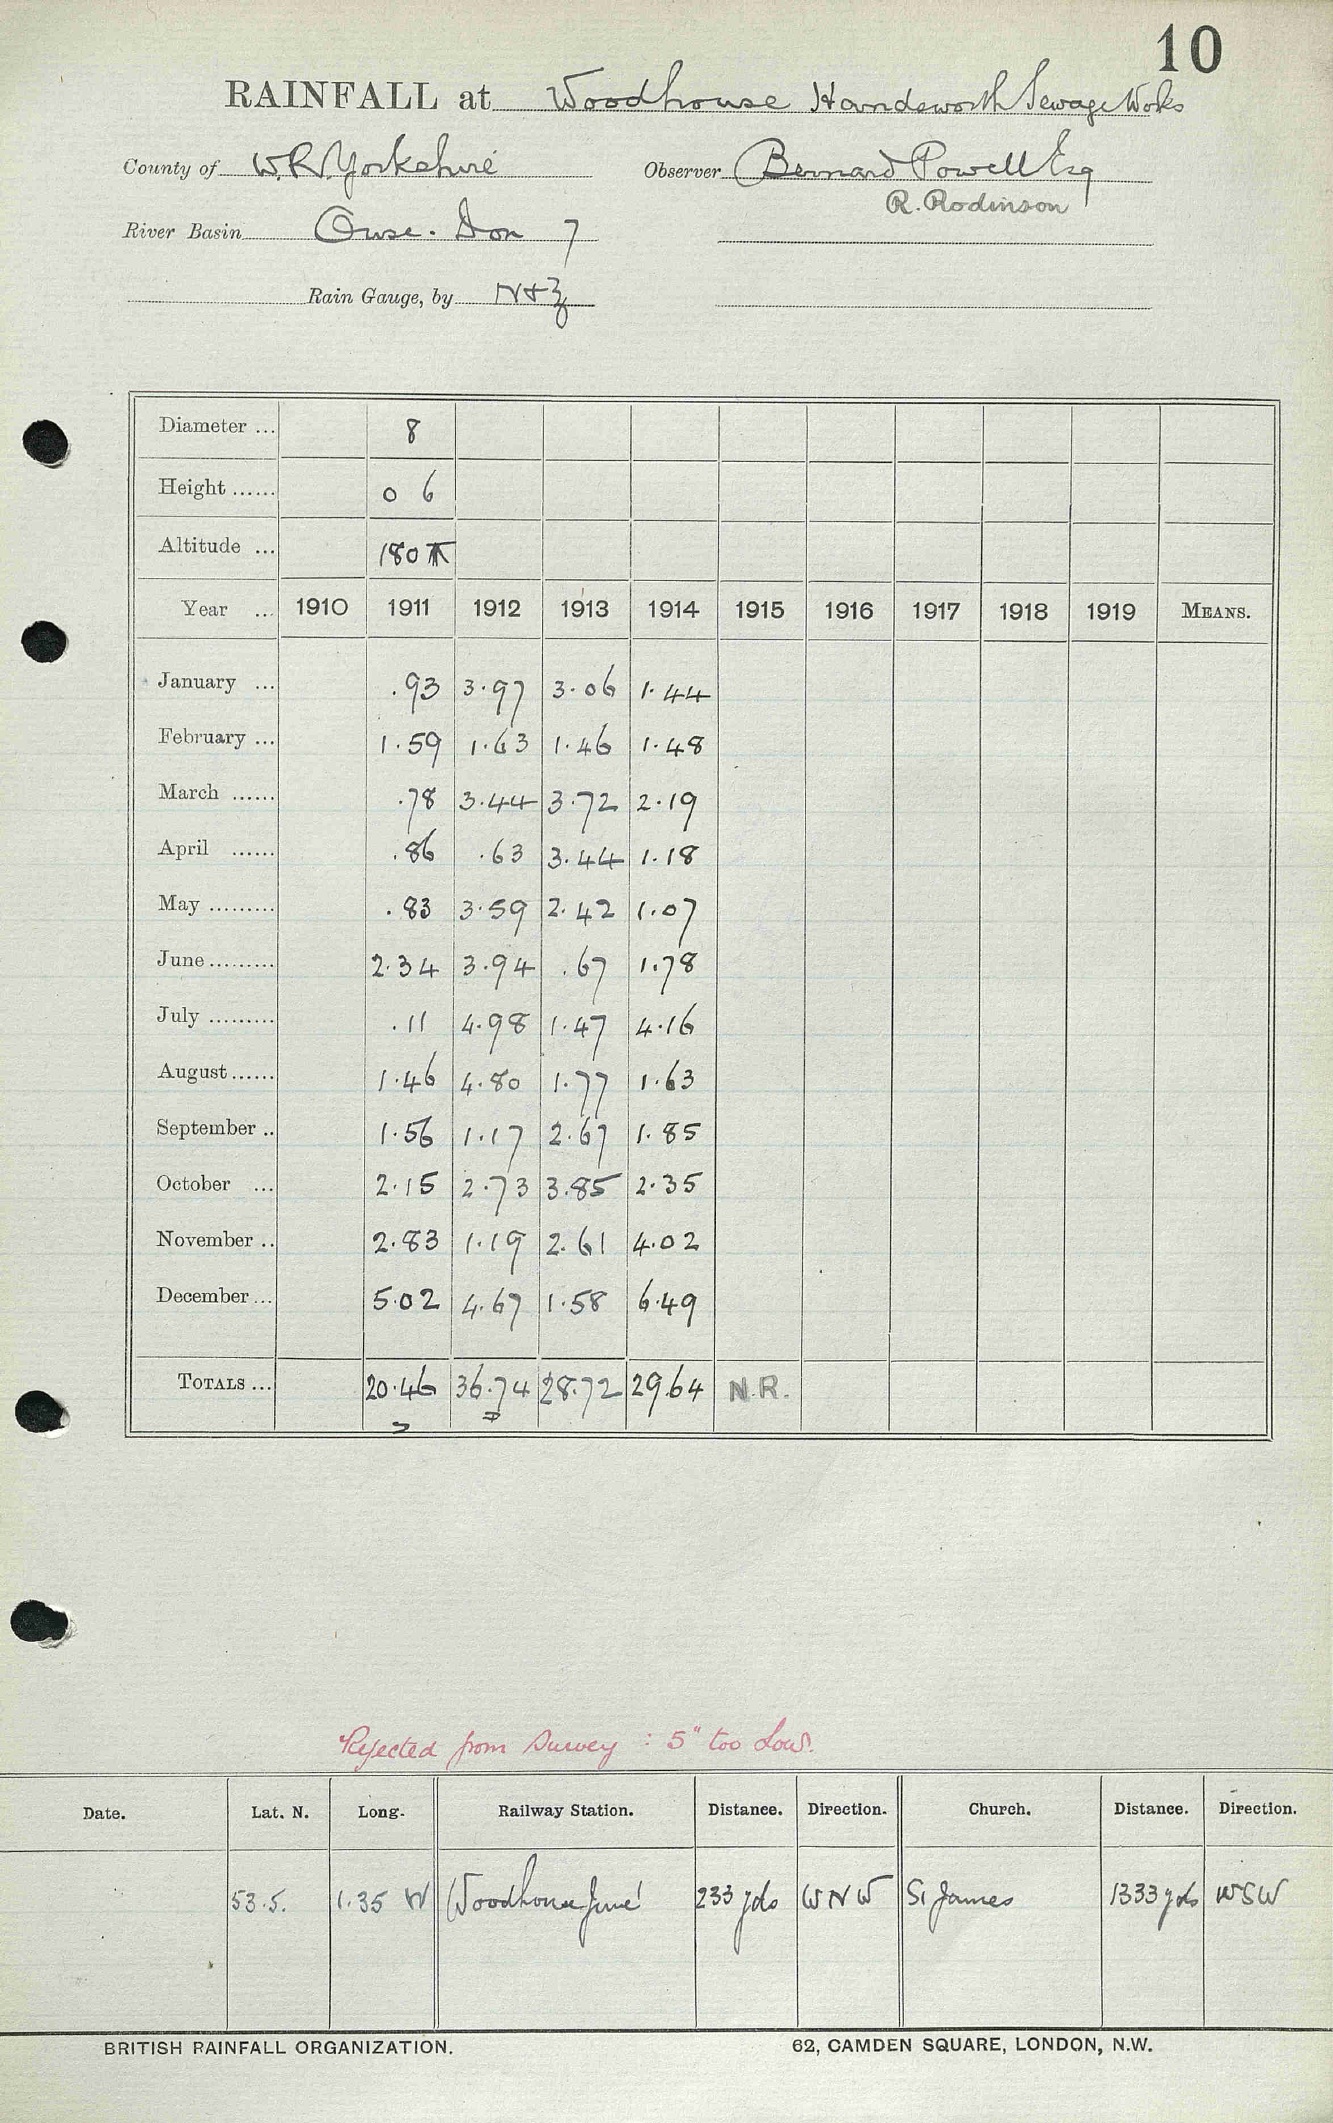 10
RAINFALL at Woodhouse Handsworth Sewage Works
County of W.R. Yorkshire Observer Bernard Powell Esq
R. Rodinson
River Basin Ouse. Don 7
Rain Gauge, by N+Z
Diameter ... 8
Height ...... 0 6
Altitude ... 180
Year ... 1910 1911 1912 1913 1914 1915 1916 1917 1918 1919 MEANS.
January ... .93 3.97 3.06 1.44
February ... 1.59 1.63 1.46 1.48
March ...... .78 3.44 3.72 2.19
April ...... .86 .63 3.44 1.18
May ......... .83 3.59 2.42 1.07
June ......... 2.34 3.94 .67 1.78
July ......... .11 4.98 1.47 4.16
August ...... 1.46 4.80 1.77 1.63
September .. 1.56 1.17 2.67 1.85
October ... 2.15 2.73 3.85 2.35
November .. 2.83 1.19 2.61 4.02
December ... 5.02 4.67 1.58 6.49
TOTALS ... 20.46 36.74 28.72 29.64 N.R.
Rejected from Survey : 5" too Low.
Date. Lat. N. Long. Railway Station. Distance. Direction. Church. Distance. Direction.
53.5. 1.35 W Woodhouse Junc 233 yds WNW St James 1333 yds WSW
BRITISH RAINFALL ORGANIZATION. 62, CAMDEN SQUARE, LONDON, N.W.